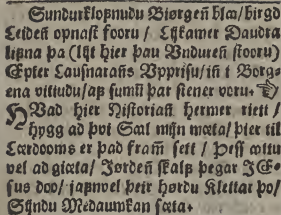 Sundurkloſnudu Biørgeñ blaa/ birgd
Leideñ opnaſt fooru / Lijkamer Daudra
lifna þa (lijt hier þau Vndureñ ſtooru)
Epter Lauſnarañs Vpprifu/ iñ i Borg=
ena vitiudu/ aſ ſumū þar ſiener voru. ☜
HVad hier Hiſtoriañ hermer riett /
hygg ad þvi Sæl mijn mæta/ þier til
Lærdooms er þad frañ ſett / Þeſſ ættu
vel ad giæta/ Jordeñ ſkalf þegar JE=
ſus doo/ jafnvel þeir hørdu Klettar þo/
Syndu Medaumkan ſæta.